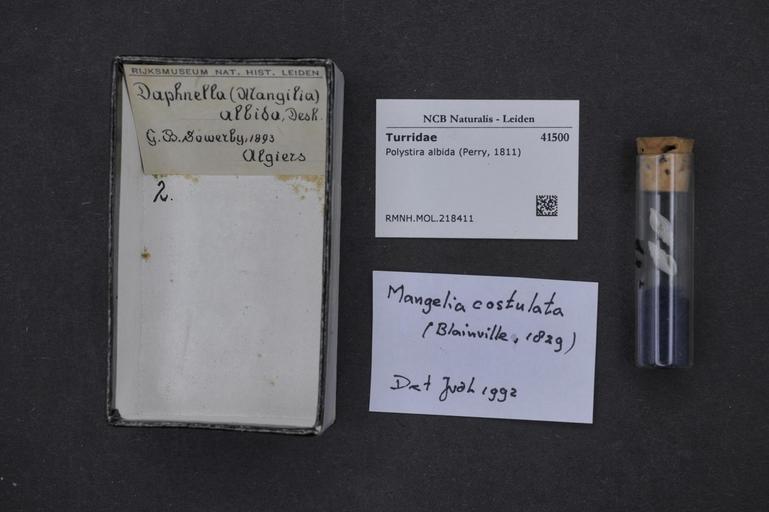 RIJKSMUSEUM NAT. HIST. LEIDEN
Daphnella (Mangilia)
albida, Desh.
G. B. Sowerby, 1893
Algiers
2.
NCB Naturalis - Leiden
Turridae 41500
Polystira albida (Perry, 1811)
RMNH.MOL.218411
Mangelia costulata
(Blainville, 1829)
Det JvdL 1992